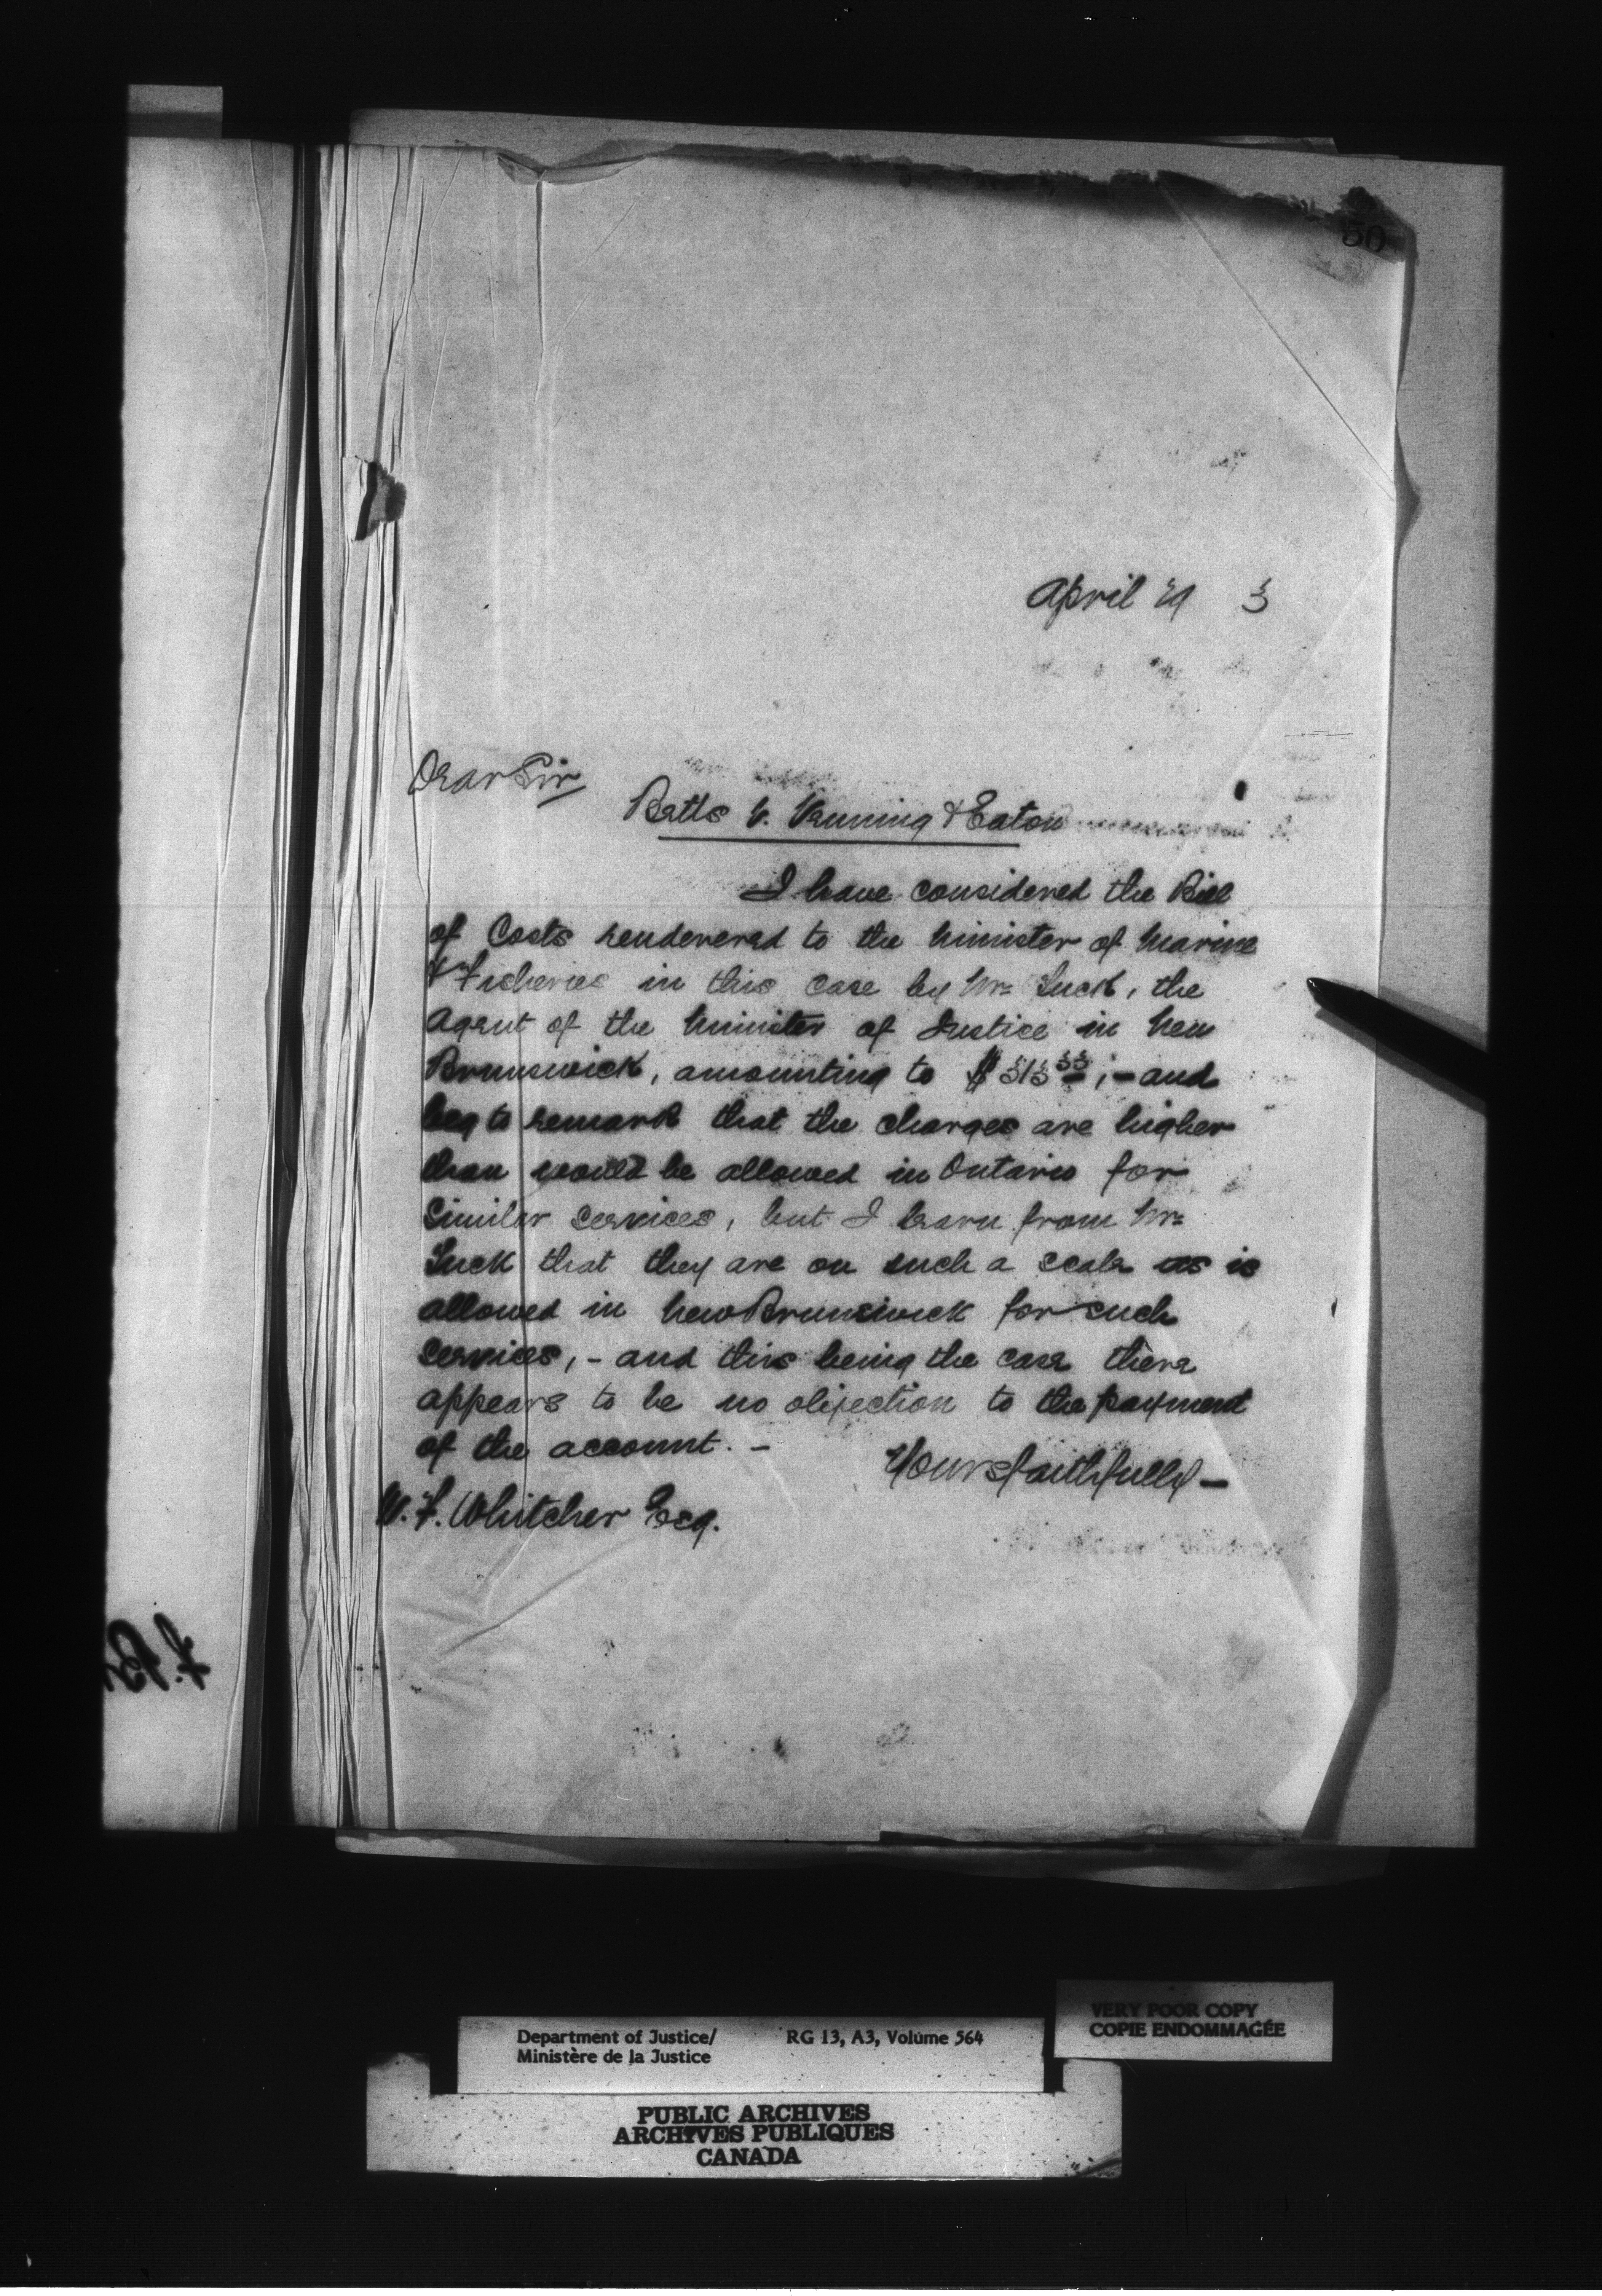 50
April 29 3
Dear Sir
Betts v. Venning & Eaton
I have considered the Bill
of Costs rendered to the Minister of Marine
& Fisheries in this case by Mr. Tuck, the
Agent of the Minister of Justice in New
Brunswick, amounting to ; - and
beg to remark that the charges are higher
than would be allowed in Ontario for
Similar services, but I learn from Mr.
Tuck that they are on such a scale as is
allowed in New Brunswick for such
services, - and this being the case there
appears to be no objection to the payment
of the account. -
Yours faithfully -
W. F. Whitcher Esq.
Department of Justice/ RG 13, A3, Volume 564
Ministère de la Justice
VERY POOR COPY
COPIE ENDOMMAGÉE
PUBLIC ARCHIVES
ARCHIVES PUBLIQUES
CANADA